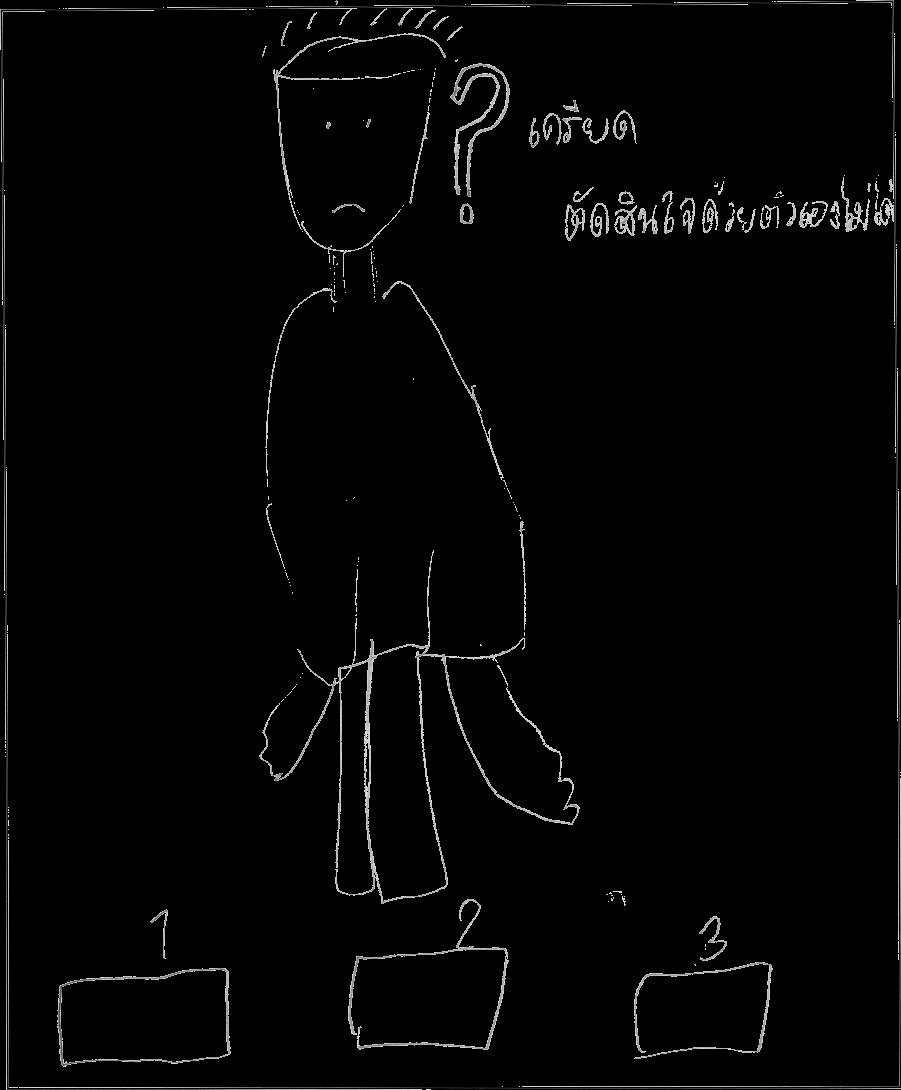 เครียด
ตัดสินใจด้วยตัวเองไม่ได้
1 2 3